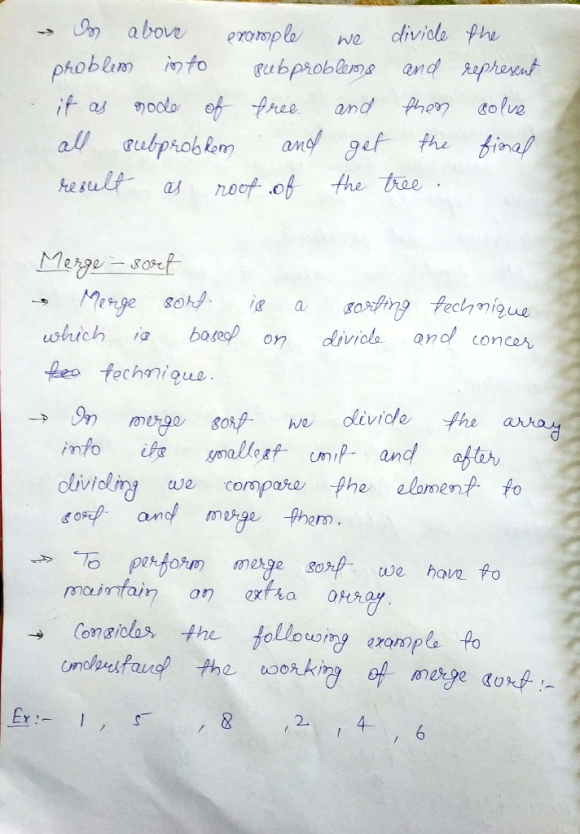 → In above example we divide the
problem into subproblems and represent
it as node of tree and then solve
all subproblem and get the final
result as root of the tree.
Merge-sort
→ Merge sort is a sorting technique
which is based on divide and concer
technique.
→ In merge sort we divide the array
into its smallest unit and after
dividing we compare the element to
sort and merge them.
→ To perform merge sort we have to
maintain an extra array.
→ Consider the following example to
understand the working of merge sort:-
Ex:- 1, 5, 8, 2, 4, 6